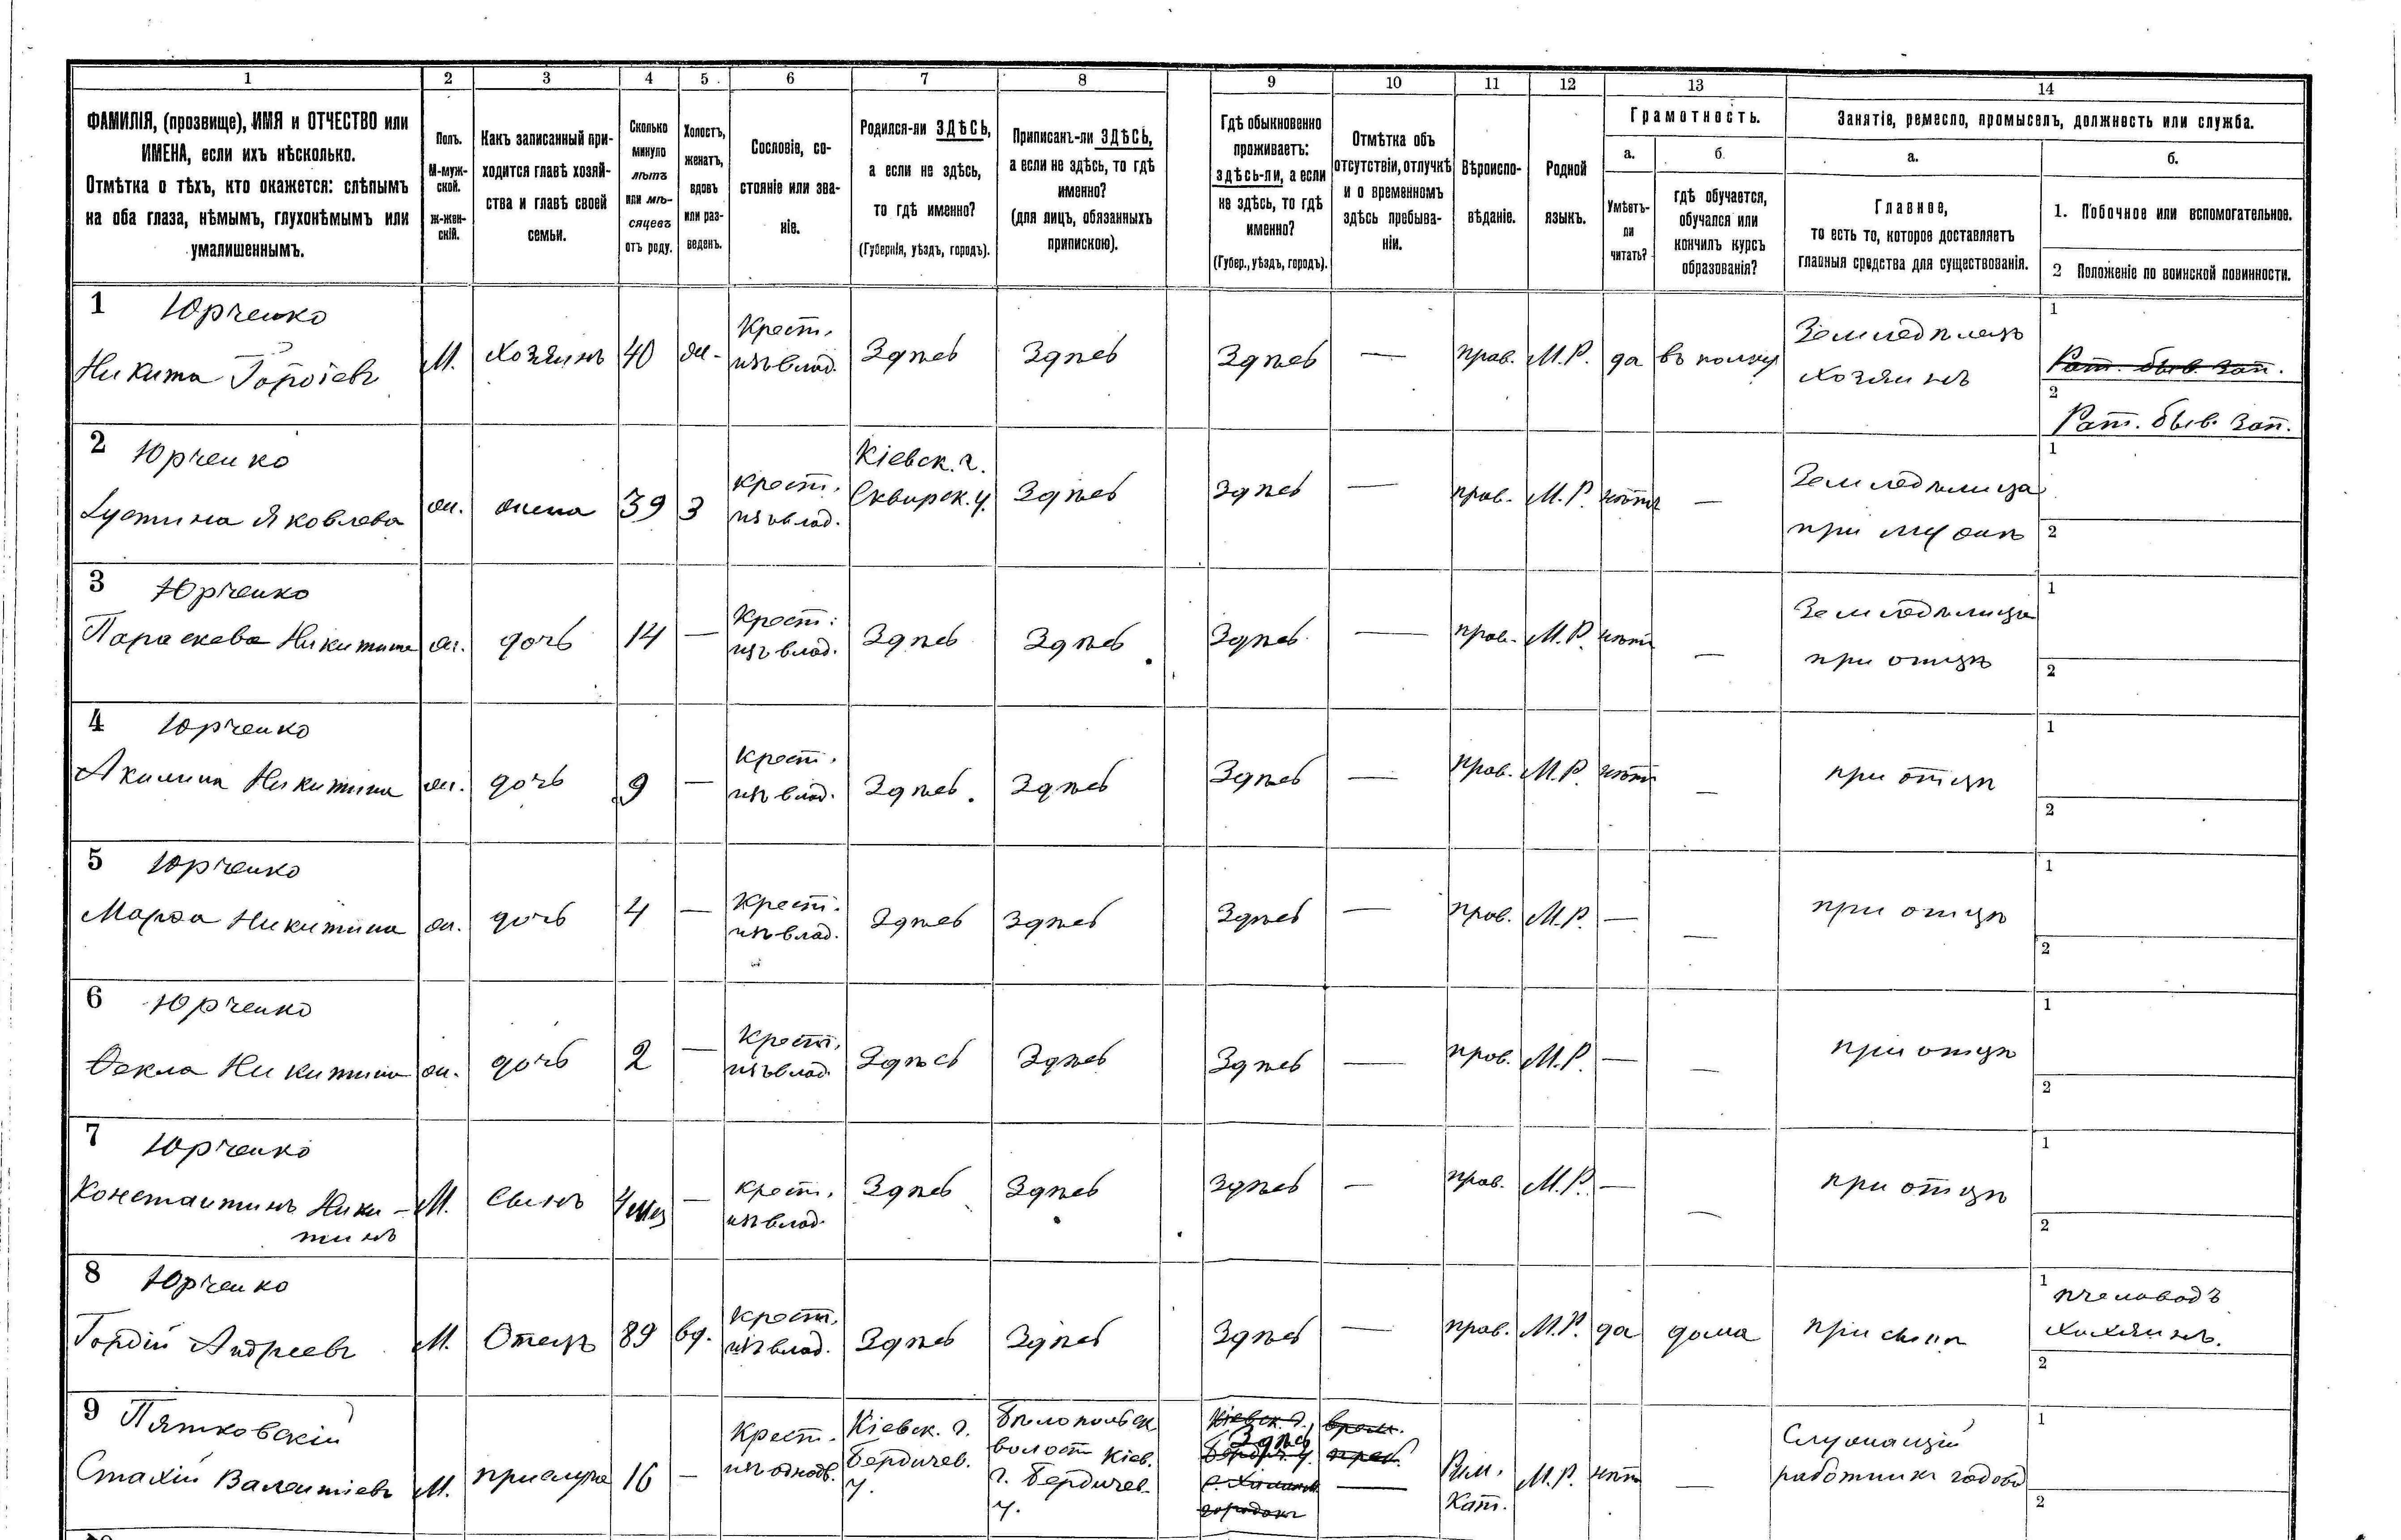 1 2 3 4 5 6 7 8 9 10 11 12 13 14
ФАМИЛІЯ, (прозвище), ИМЯ и ОТЧЕСТВО или
ИМЕНА, если ихъ нѣсколько.
Отмѣтка о тѣхъ, кто окажется: слѣпымъ
на оба глаза, нѣмымъ, глухонѣмымъ или
умалишеннымъ.
Полъ.
М-муж-
ской.
ж-жен-
скій.
Какъ записанный при-
ходится главѣ хозяй-
ства и главѣ своей
семьи.
Сколько
минуло
лѣтъ
или мѣ-
сяцевъ
отъ роду.
Холостъ,
женатъ,
вдовъ
или раз-
веденъ.
Сословіе, со-
стояніе или зва-
ніе.
Родился-ли ЗДѢСЬ,
а если не здѣсь,
то гдѣ именно?
(Губернія, уѣздъ, городъ).
Приписанъ-ли ЗДѢСЬ,
а если не здѣсь, то гдѣ
именно?
(для лицъ, обязанныхъ
припискою).
Гдѣ обыкновенно
проживаетъ:
здѣсь-ли, а если
не здѣсь, то гдѣ
именно?
(Губер., уѣздъ, городъ).
Отмѣтка объ
отсутствіи, отлучкѣ
и о временномъ
здѣсь пребыва-
ніи.
Вѣроиспо-
вѣданіе.
Родной
языкъ.
Грамотность.
а.
Умѣетъ-
ли
читать?
б.
гдѣ обучается,
обучался или
кончилъ курсъ
образованія?
Занятіе, ремесло, промыселъ, должность или служба.
а.
Главное,
то есть то, которое доставляетъ
главныя средства для существованія.
б.
1. Побочное или вспомогательное.
2 Положеніе по воинской повинности.
1 Юрченко
Никита Гордіевъ
М.
хозяинъ
40
ж-
Крест.
изъ влад.
Здѣсь
Здѣсь
Здѣсь
—
прав.
М.Р.
да
Земледѣлецъ
хозяинъ
1
Рат. быв. зап.
2
Рат. быв. зап.
2 Юрченко
Іустина Яковлева
ж.
жена
39
З
крест.
изъ влад.
Кіевск. г.
Сквирск. у.
Здѣсь
Здѣсь
—
прав.
М.Р.
нѣтъ
—
Земледѣлица
при мужѣ
1
2
3 Юрченко
Параскева Никитина
ж.
дочь
14
—
Крест.
изъ влад.
Здѣсь
Здѣсь
Здѣсь
—
прав.
М.Р.
нѣтъ
—
Земледѣлица
при отцѣ
1
2
4 Юрченко
Акилина Никитина
ж.
дочь
9
—
Крест.
изъ влад.
Здѣсь.
Здѣсь
Здѣсь
—
прав.
М.Р.
нѣтъ
—
при отцѣ
1
2
5 Юрченко
Марѳа Никитина
ж.
дочь
4
—
Крест.
изъ влад.
Здѣсь
Здѣсь
Здѣсь
—
прав.
М.Р.
—
—
при отцѣ
1
2
6 Юрченко
Ѳекла Никитина
ж.
дочь
2
—
Крест.
изъ влад.
Здѣсь
Здѣсь
Здѣсь
—
прав.
М.Р.
—
—
при отцѣ
1
2
7 Юрченко
Константинъ Ники-
тинъ
М.
Сынъ
4 мес
—
крест.
изъ влад.
Здѣсь
Здѣсь
Здѣсь
—
прав.
М.Р.
—
—
при отцѣ
1
2
8 Юрченко
Гордій Андреевъ
М.
Отецъ
89
вд.
Крест.
изъ влад.
Здѣсь
Здѣсь
Здѣсь
—
прав.
М.Р.
да
дома
при сынѣ
1
пчеловодъ
хозяинъ.
2
9 Пятковскій
Стахій Валентіевъ
М.
прислуга
16
—
Крест.
изъ однодв.
Кіевск. г.
Бердичев.
у.
Бѣлопольск
волост Кіев.
г. Бердичев.
у.
Кіевск. г.
Здѣсь
Бердич. у.
городокъ
врем.
преб.
—
Рим.
Кат.
М.Р.
нѣтъ
—
Служащій
работникъ годовой
1
2